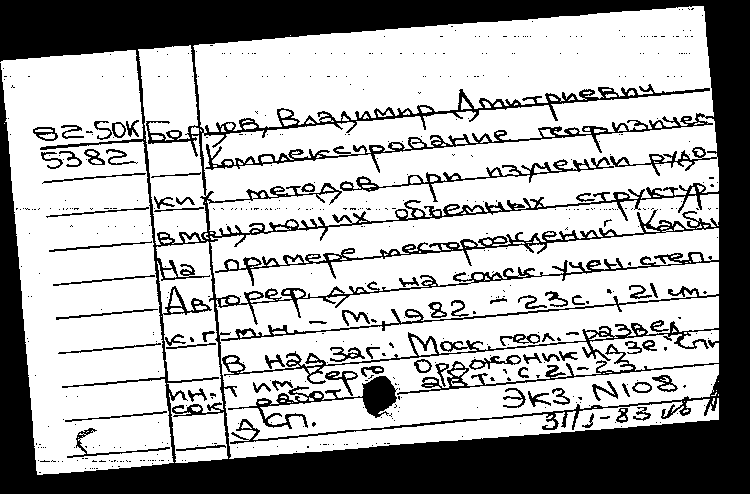 82-50К Борцов, Владимир Дмитриевич.
5382 Комплексирование геофизичес-
ких методов при изучении рудо-
вмещающих объемных структур:
На примере месторождений Калбы
Автореф. дис. на соиск. учен. степ.
к. г.-м. н. - М., 1982. - 23 с. ; 21 см.
В надзаг.: Моск. геол.-развед.
ин-т им. Серго Орджоникидзе. Спи
сок работ авт.: с. 21-23.
ДСП. Экз. N108.
31/I-83